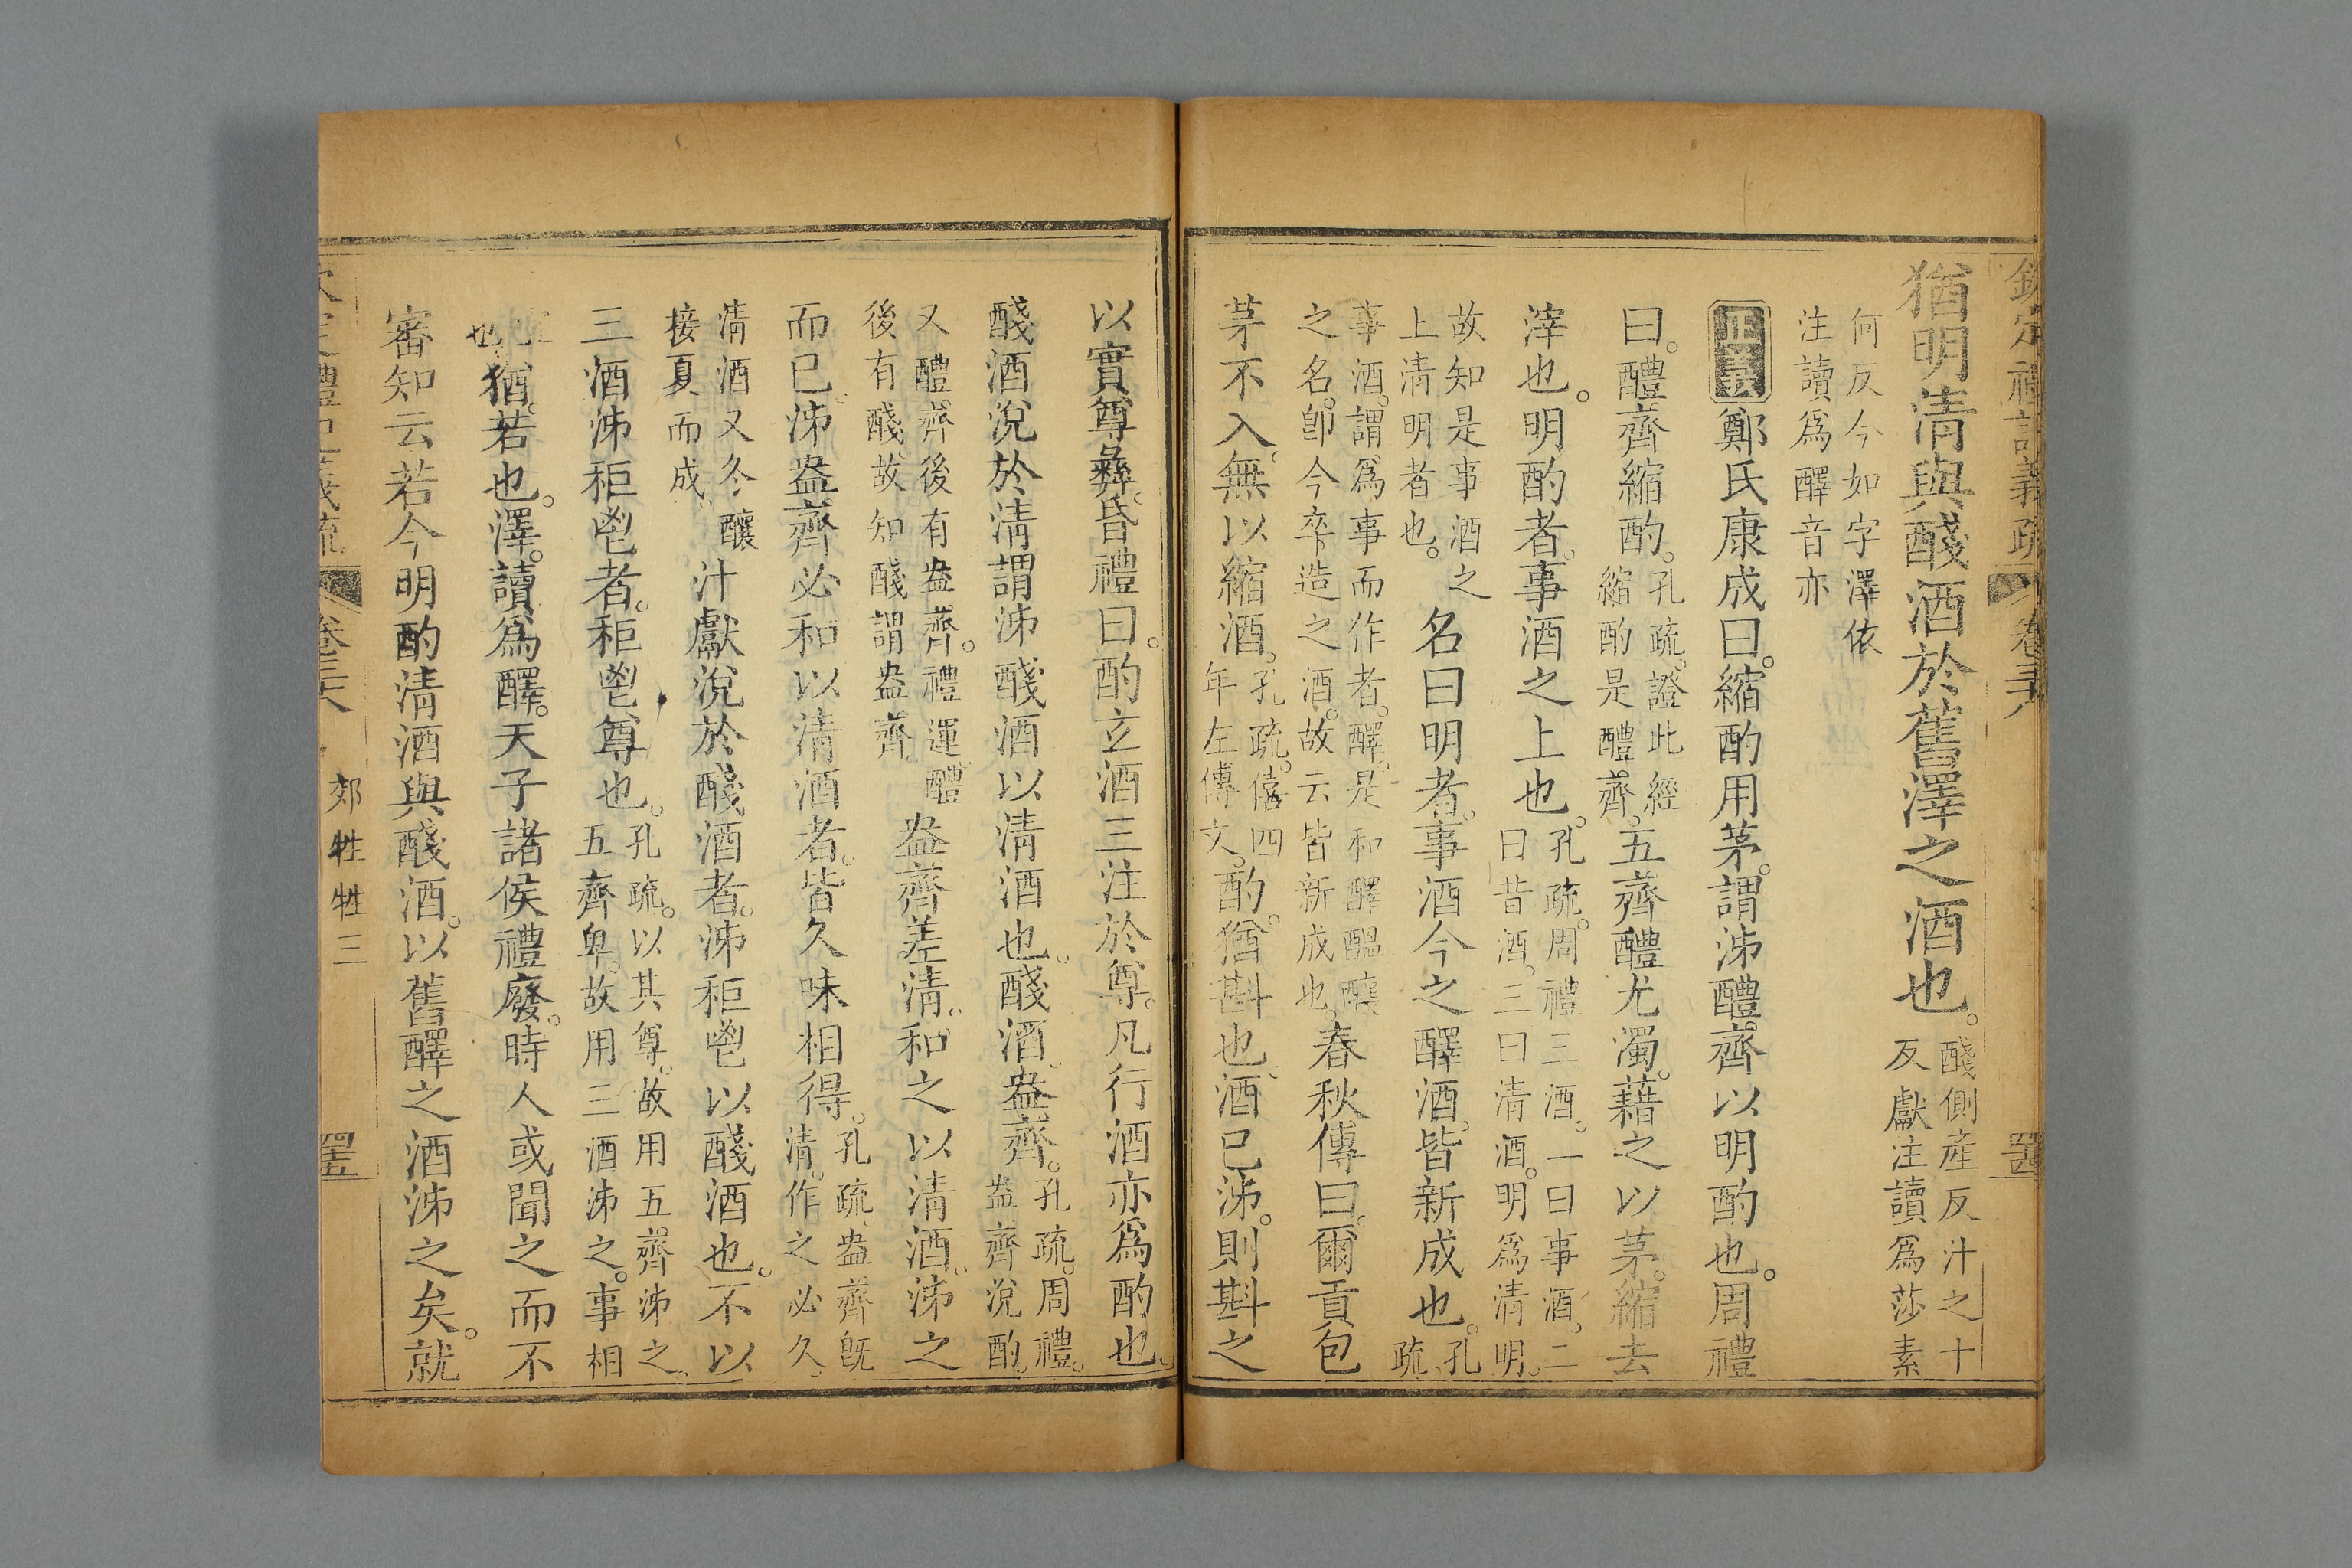 欽定禮記義疏 卷 郊特牲三
猶明清與醆酒於舊澤之酒也。醆側産反汁之十反獻注讀爲莎素
何反今如字澤依注讀爲醳音亦
正義鄭氏康成曰。縮酌用茅。謂泲醴齊以明酌也。周禮
曰。醴齊縮酌。孔疏。證此經縮酌是醴齊。五齊醴尤濁。藉之以茅。縮去
滓也。明酌者。事酒之上也。孔疏。周禮三酒。一曰事酒、二曰昔酒、三曰清酒。明爲清明。
故知是事酒之上清明者也。名曰明者。事酒今之醳酒。皆新成也。孔疏、
事酒。謂爲事而作者。醳、是和醳醖釀之名。卽今卒造之酒。故云皆新成也。春秋傳曰。爾貢包
茅不入。無以縮酒。孔疏。僖四年左傳文。酌。猶斟也。酒已泲。則斟之
以實尊彝。昏禮曰。酌玄酒三注於尊。凡行酒亦爲酌也。
醆酒涚於清。謂泲醆酒以清酒也。醆酒。盎齊。孔疏。周禮。盎齊涚酌。
又醴齊後有盎齊。禮運、醴後有醆、故知醆謂盎齊、盎齊差清。和之以清酒。泲之
而已。泲盎齊必和以清酒者。皆久味相得。孔疏、盎齊旣清。作之必久、
清酒又冬釀接夏而成、汁獻涚於醆酒者。泲秬鬯以醆酒也。不以
三酒泲秬鬯者。秬鬯尊也。孔疏。以其尊。故用五齊泲之。五齊卑。故用三酒泲之。事相
也。猶。若也。澤。讀爲醳。天子諸侯禮廢。時人或聞之而不
審知云若今明酌清酒與醆酒。以舊醳之酒泲之矣。就